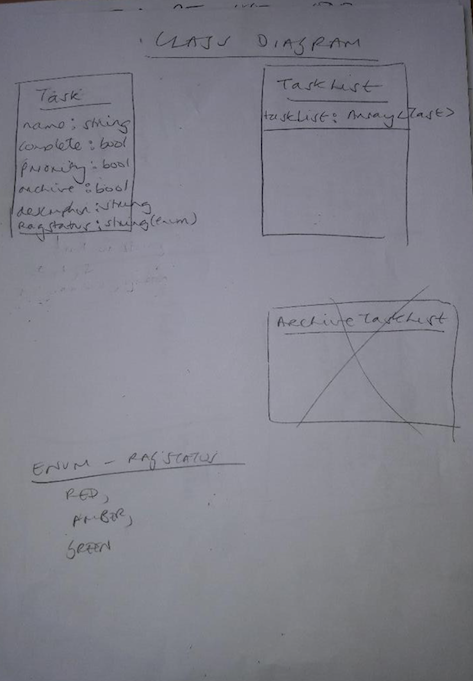 CLASS DIAGRAM
Task
name : string
complete : bool
priority : bool
archive : bool
description : string
Ragstatus : string(enum)
TaskList
taskList : Array<Task>
ArchiveTaskList
ENUM - RAGSTATUS
RED,
AMBER,
GREEN